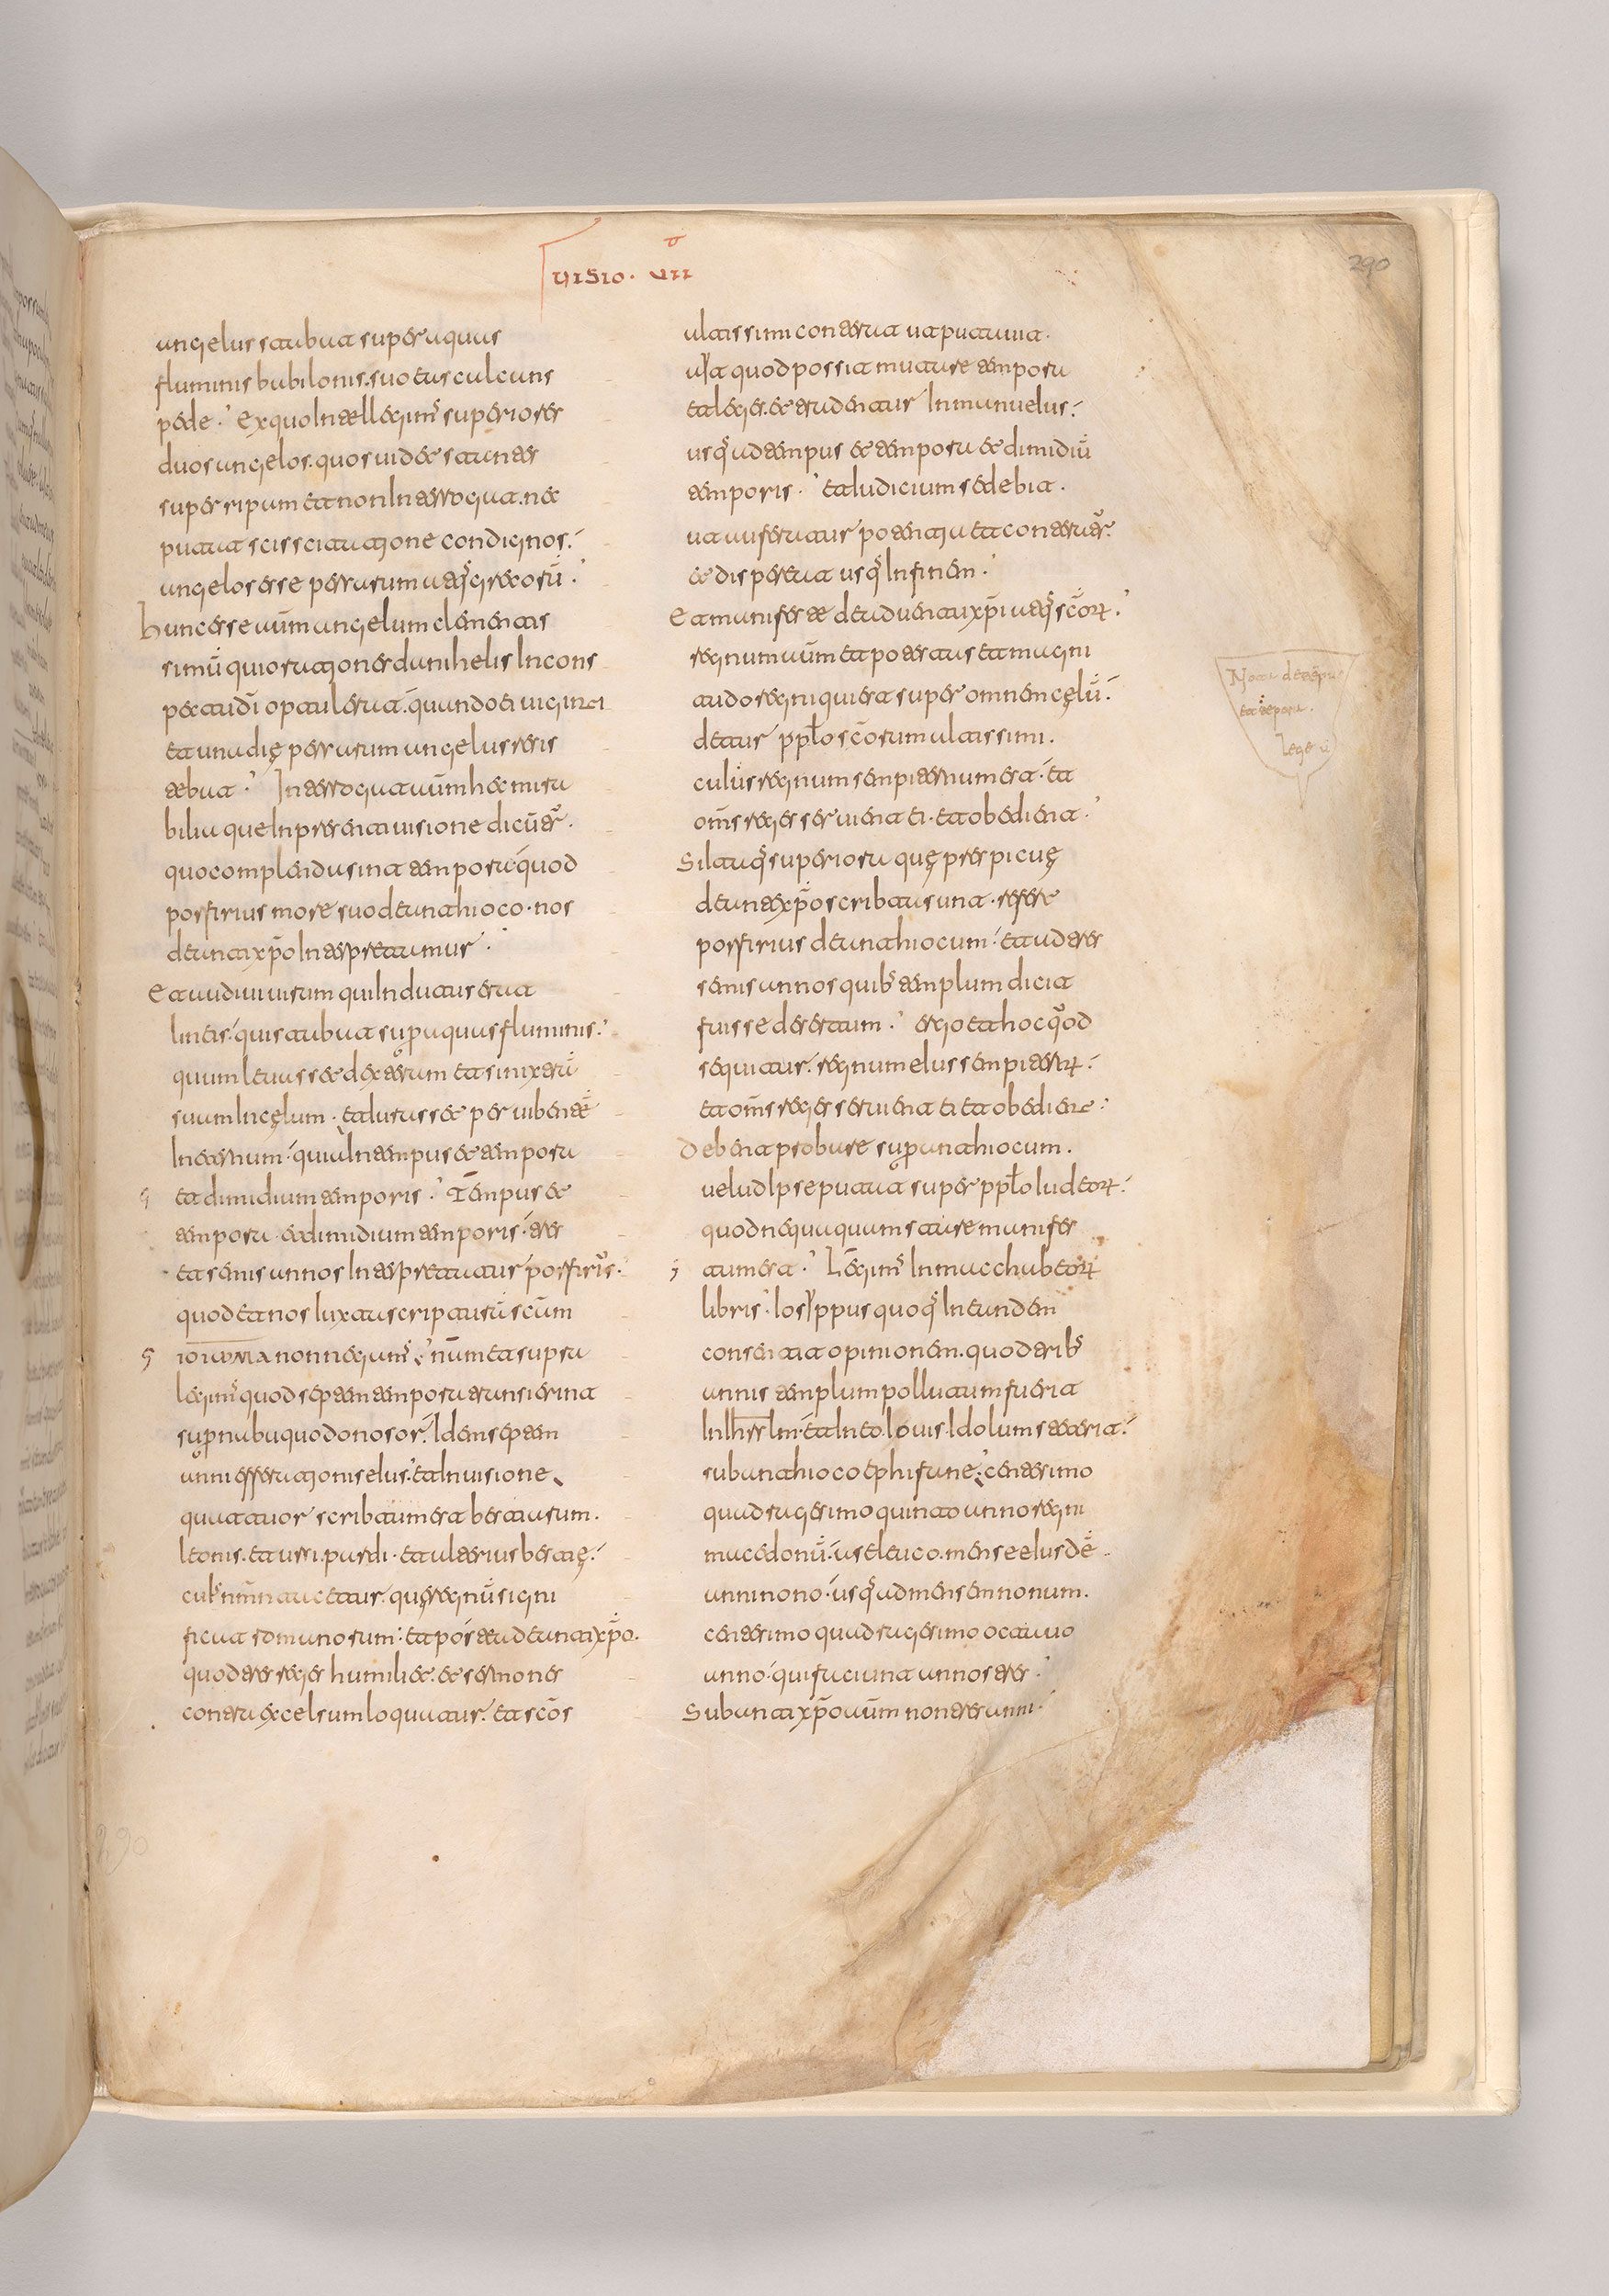 uisio · uII
290
angelus stabat super aquas
fluminis babilonis. suo eas calcans
pede. Ex quo Intellegimꝰ superiores
duos angelos. quos uidet stantes
super ripam et non Interrogat. nec
putat scisscitatione condignos.
angelos esse persarum atqꝫ grecorū.
hunc esse aūm angelum clementis
simū qui orationes danihelis In cons
pectu dī optulerat. quando ei uiginti
et una dię persarum angelus resis
tebat. Interrogat aūm hec mira
bilia que In presenti uisione dicūtr.
quo complenda sint tempora. quod
porfirius more suo de antioco. nos
de antixp̄o Interpretamur.
Et audiui uirum qui Indutus erat
lineis. qui stabat supr aquas fluminis.
quum leuasset dexteram et sinixtrā
suam In cęlum. et Iurasset per uibentē
In eternum. quia In tempus et tempora
et dimidium temporis. Tempus et
tempora et dimidium temporis. tres
et semis annos Interpretatur porfiriꝰs.
quod et nos Iuxta scripturarū scārum
ιδιωμα non negamꝰ. nam et supra
legimꝰ quod septem tempora transierint
supr nabuquodonosor. Idem septem
anni efferationis eius. et In uisione
quattuor scribtum est bestiarum.
leonis. et ursi. pardi. et alterius bestię.
cuiꝰ nm̄n tacetur. quę regnū signi
ficat romanorum. et post de antixp̄o.
quod tres reges humiliet. et sermones
contra excelsum loquatur. et scōs
altissimi conterat et putauit.
ut quod possit mutare tempora
et leges. et tradentur In manu eius.
usqꝫ ad tempus et tempora et dimidiū
temporis. et Iudicium sedebit.
ut auferatur potentia et conteratr.
et dispereat usqꝫ In finem.
Et manifeste de aduentu xp̄i atqꝫ scōrum.
regnum aūm et potestas et magni
tudo regni que est super omnem cęlū.
detur pplo scōrum altissimi.
cuius regnum sempiternum est. et
om̄s reges seruient ei. et obedient.
Si Itaqꝫ superiora quę perspicuę
de antixp̄o scribta sunt. refert
porfirius de antiocum. et ad tres
semis annos quibꝰ templum dicit
fuisse desertum. ergo et hoc qꝰod
sequitur. regnum eius sempiternum.
et om̄s reges seruient ei et obedient.
debent probare supr antiocum.
uel ut Ipse putat super pplo Iudeorum.
quod nequaquam stare manifes
tum est. Legimꝰ In maccabeorum
libris. Iosippus quoqꝫ In eandem
consentit opinionem. quod tribꝰ
annis templum pollutum fuerit
In Iherslm. et In eo Iouis Idolum steterit.
sub antioco epifane. centesimo
quadragesimo quinto anno regni
macedonū. a seleuco. mense eius dē
anni nono. usqꝫ ad mensem nonum.
centesimo quadragesimo octauo
anno. qui faciunt annos tres.
Sub antixp̄o aūm non tres anni.